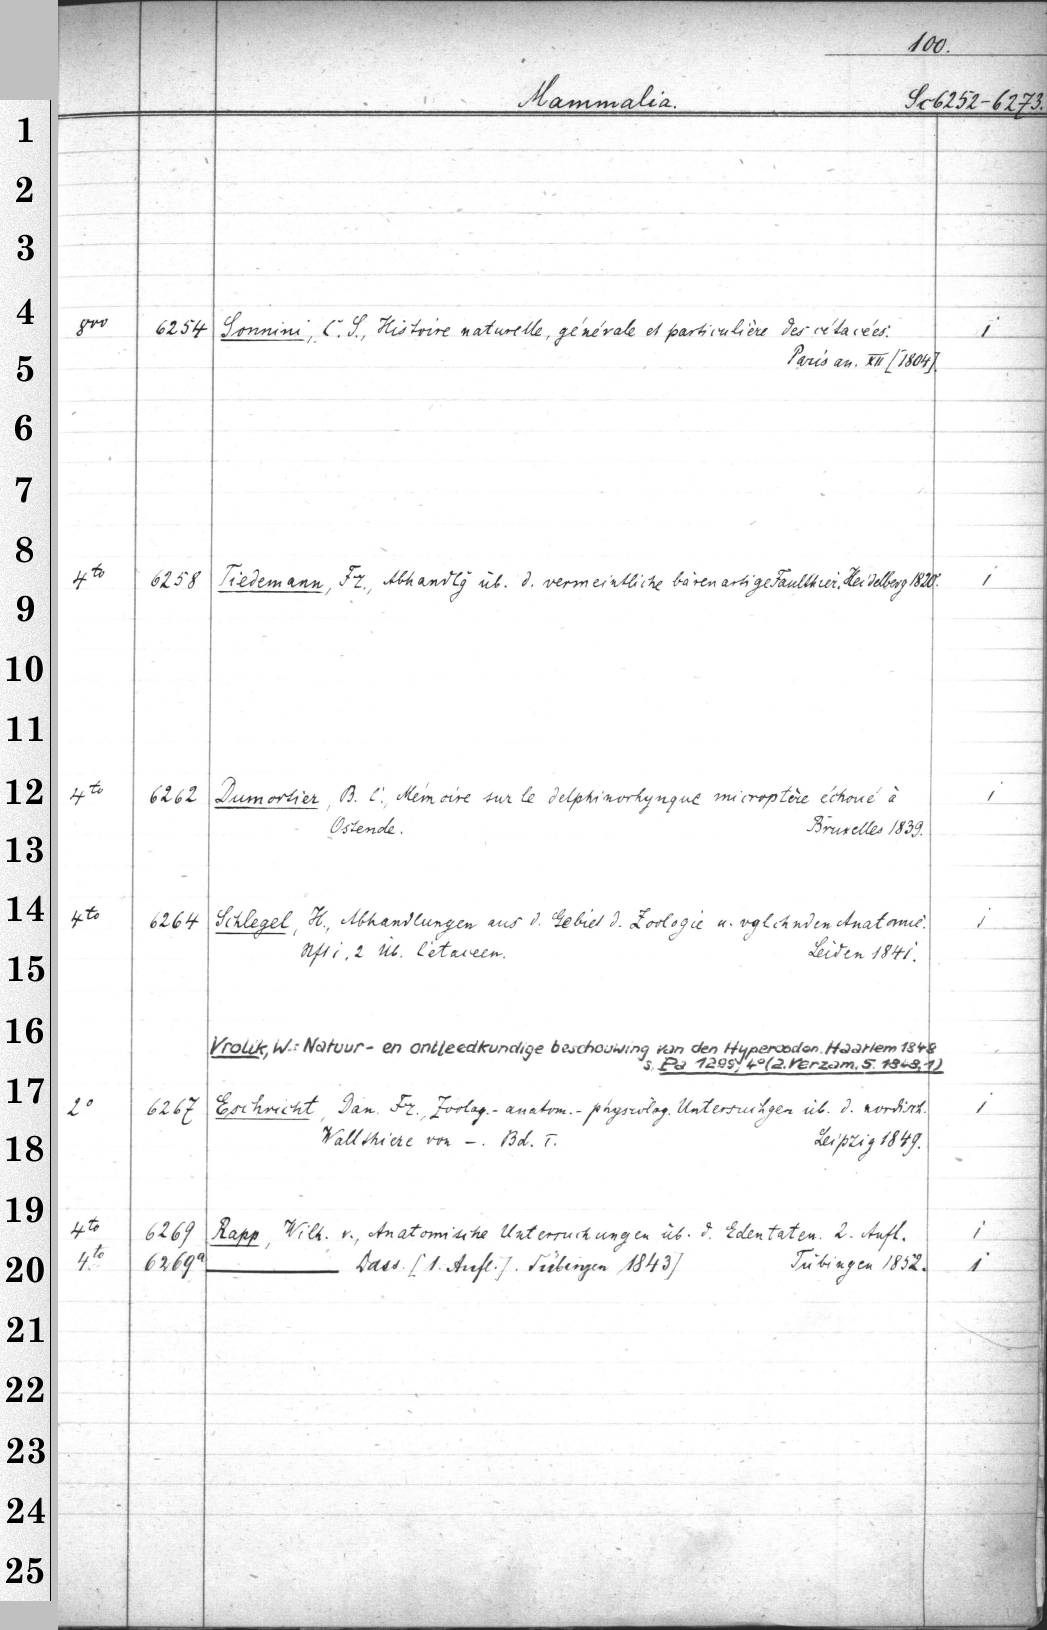 100.
Mammalia. Sc6252-6273.
1
2
3
4
8vo 6254 Sonnini, C. S., Histoire naturelle, générale et particulière des cétacées. 1
Paris an. XII [1804].
5
6
7
8
4to 6258 Tiedemann, Fr., Abhandlg üb. d. vermeintliche bärenartige Faulthier. Heidelberg 1820. 1
9
10
11
12
4to 6262 Dumortier, B. C., Mémoire sur le delphinorhynque microptère échoué à 1
Ostende. Bruxelles 1839.
13
14
4to 6264 Schlegel, H., Abhandlungen aus d. Gebiet d. Zoologie u. vglchnden Anatomie. 1
Hft 1, 2 Üb. Cetaceen. Leiden 1841.
15
16
Vrolik, W.: Natuur- en ontleedkundige beschouwing van den Hyperoodon. Haarlem 1848
s. Pa 1295, 4° (2. Verzam. 5. 1848, 1)
17
2° 6267 Eschricht, Dan. Fr., Zoolog.-anatom.-physiolog. Untersuchgen üb. d. nordisch. 1
Wallthiere von -. Bd. I. Leipzig 1849.
18
19
4to 6269 Rapp, Wilh. v., Anatomische Untersuchungen üb. d. Edentaten. 2. Aufl. 1
20
4to 6269a Dass. [1. Aufl.]. Tübingen 1843] Tübingen 1852. 1
21
22
23
24
25